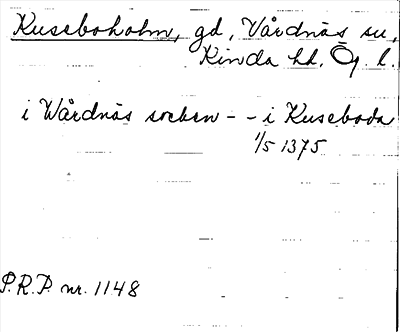 Kuseboholm, gd, Vårdnäs sn,
Kinda hd, Ög. l.
i Wårdnäs socken - - i Kuseboda
1/5 1375
P.R.P. nr. 1148